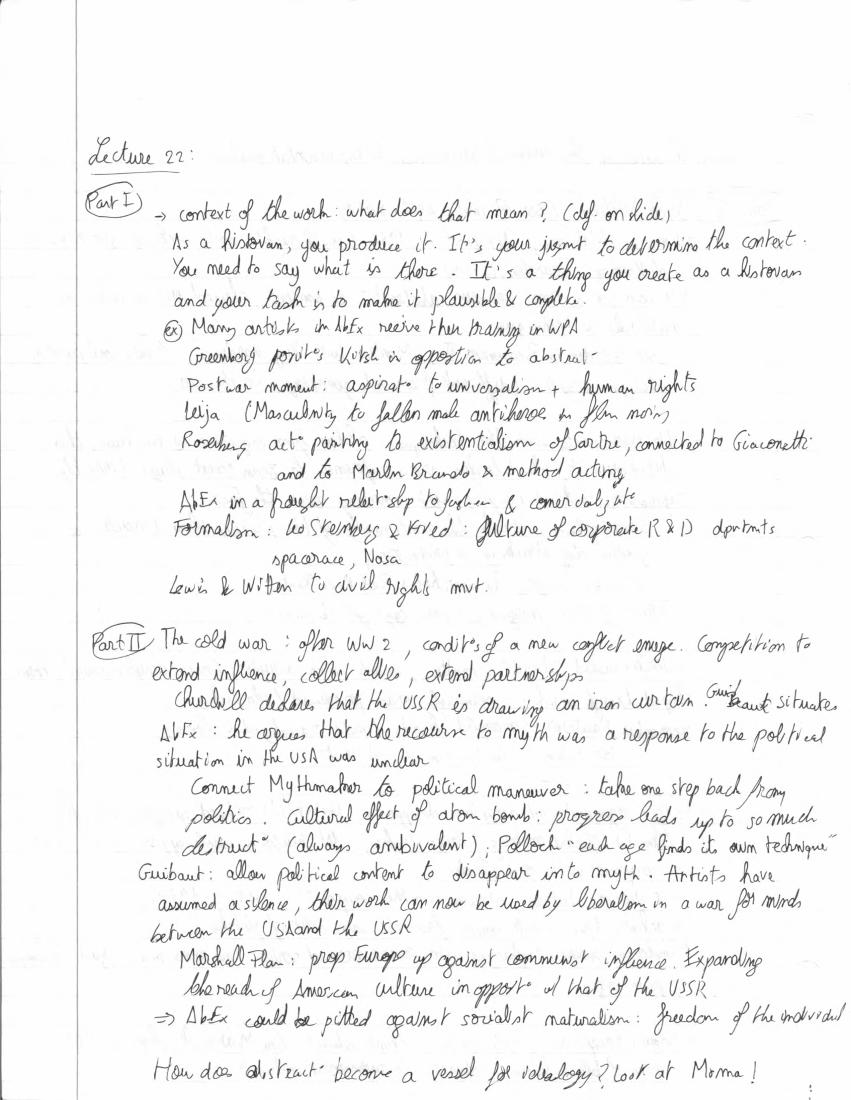 Lecture 22:
Part I
→ context of the work: what does that mean? (def. on slide)
As a histovan, you produce it. It's your jgmt to determine the context.
You need to say what is there. It's a thing you create as a histovan
and your task is to make it plausible & complete.
(ex) Many artists in AbEx receive then training in WPA
Greenberg posites Kitsh in oppostion to abstract°
Postwar moment: aspirat° to universalism + human rights
Leija (Masculinity to fallen male antiheroe in film noir)
Rosenberg act° painting to existentialism of Sartre, connected to Giacometti
and to Marlon Brando & method acting
AbEx in a fraught relat°ship to fashion & comercialized
Formalism: Leo Steinberg & Fried: culture of corporate R & D dpartmts
spacerace, Nasa
Lewis & Witten to civil rights mvt.
Part II The cold war: after WW2, condit°s of a new conflict emerge. Competition to
extend influence, collect allies, extend partnerships
Churchill declares that the USSR is drawing an iron curtain. Guilbaut situates
AbEx: he argues that the recourse to myth was a response to the political
situation in the USA was unclear
Connect Mythmaker to political maneuver: take one step back from
politics. Cultural effect of atom bomb: progress leads up to so much
destruct° (always ambivalent); Polloch "each age finds its own technique"
Guibaut: allow political content to disappear into myth. Artists have
assumed a silence, their work can now be used by liberalism in a war for minds
between the USA and the USSR
Marshall Plan: prop Europe up against communist influence. Expanding
the reach of American culture in opposit° w/ that of the USSR
⇒ AbEx could be pitted against socialist naturalism: freedom of the individual
How does abstract° become a vessel for idealogy? Look at Moma!